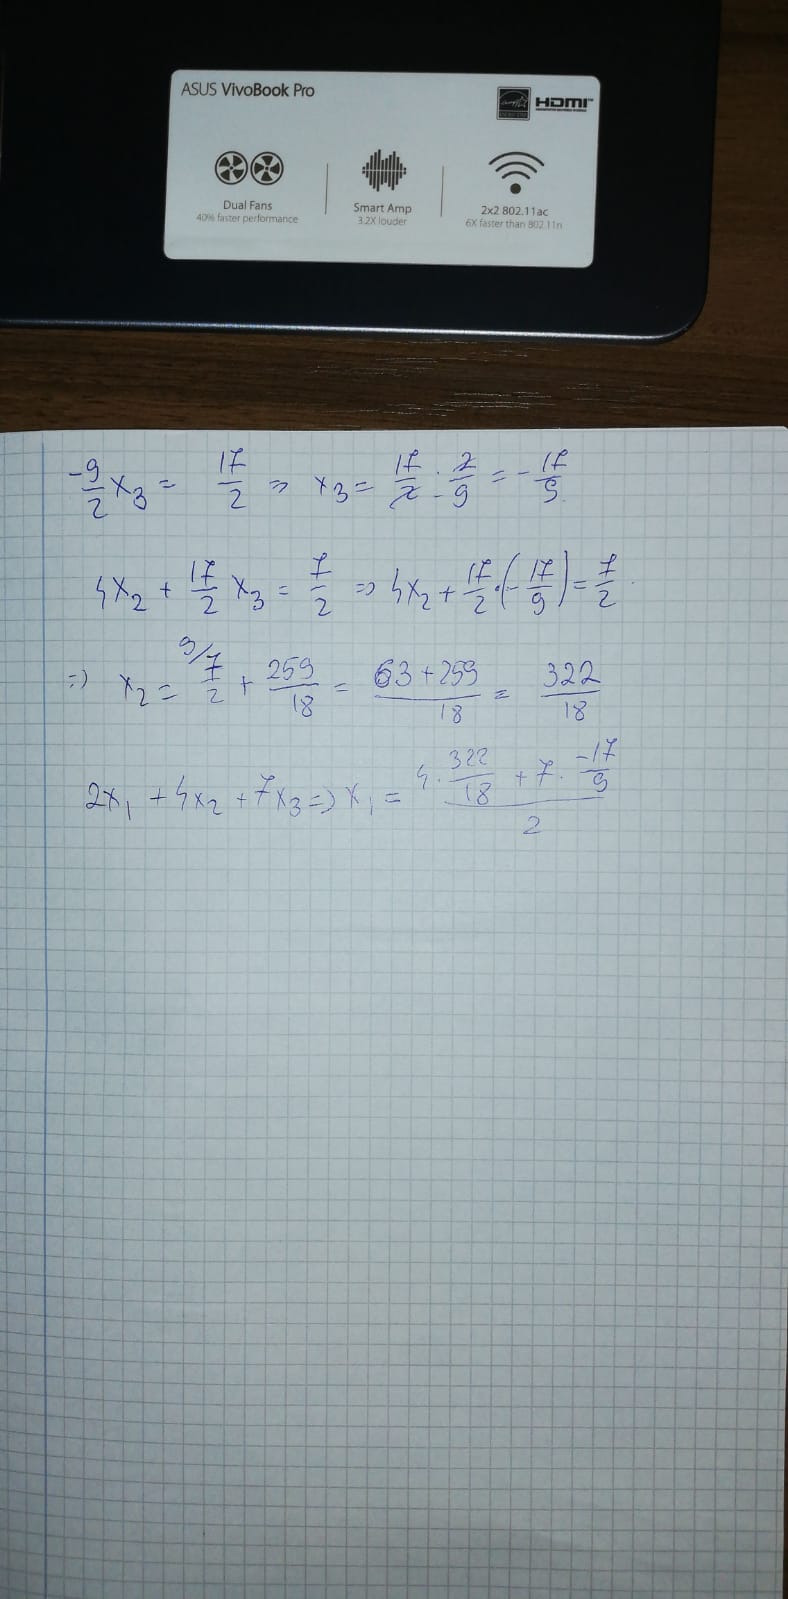 ASUS VivoBook Pro
HDMI
Dual Fans
40% faster performance
Smart Amp
3.2X louder
2x2 802.11ac
6X faster than 802.11n
-9/2 x₃ = 17/2 => x₃ = 17/2 · 2/-9 = -17/9
4x₂ + 17/2 x₃ = 7/2 => 4x₂ + 17/2 · (-17/9) = 7/2
=> x₂ = 9/ 7/2 + 259/18 = (63+259)/18 = 322/18
2x₁ + 4x₂ + 7x₃ => x₁ = (4 · 322/18 + 7 · -17/9)/2